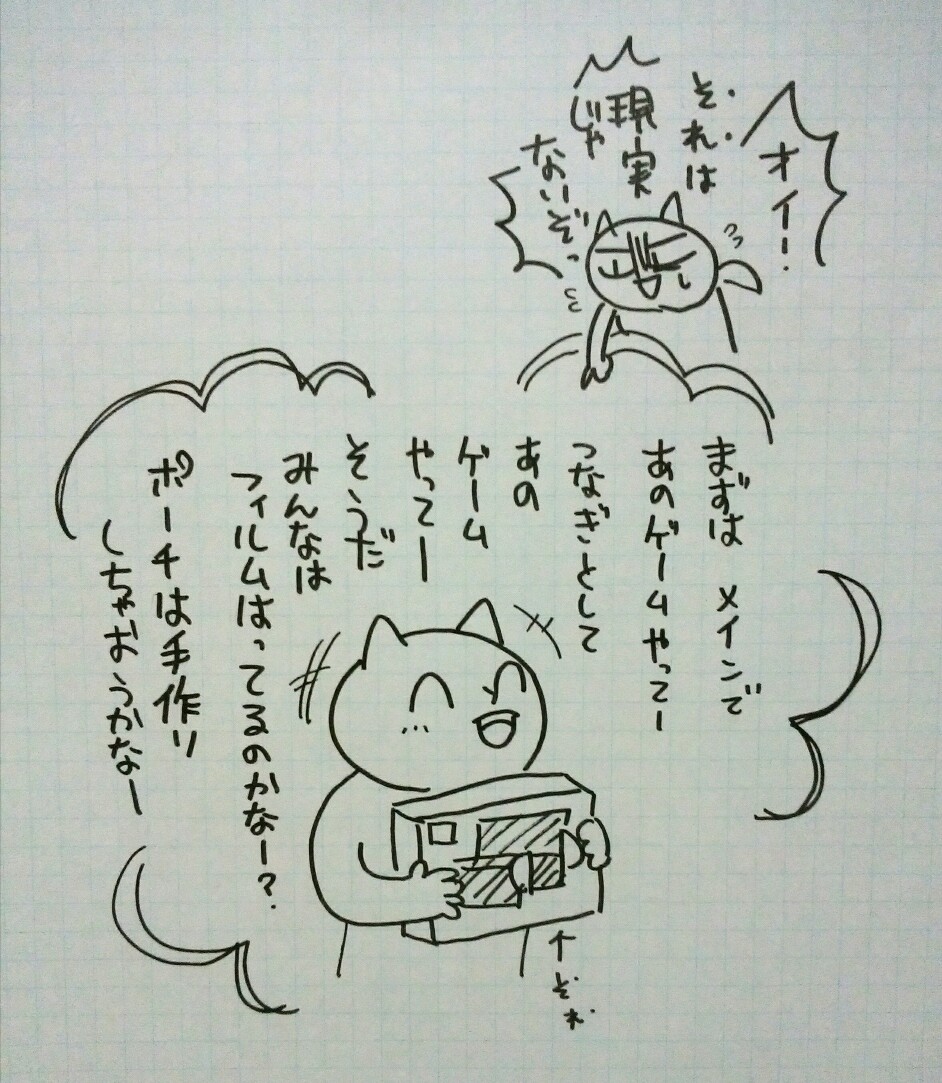 オイ!
それは
現実
じゃ
ないぞっ
まずは メインで
あのゲームやってー
つなぎとして
あの
ゲーム
やってー
そうだ
みんなは
フィルムはってるのかなー?
ポーチは手作り
しちゃおうかなー
↑それ